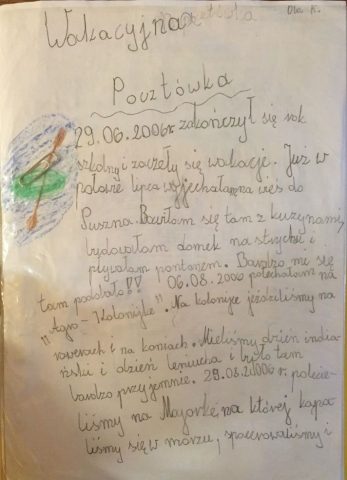 Ola K.
Wakacyjna
Pocztówka
29.06.2006r zakończył się rok
szkolny i zaczęły się wakacje. Już w
połowie lipca wyjechałam na wieś do
Puszna. Bawiłam się tam z kuzynami,
budowałam domek na strychu i
pływałam pontonem. Bardzo mi się
tam podobało!! 06.08.2006 pojechałam na
"Agro-Kolonijke". Na kolonijce jeździliśmy na
rowerach i na koniach. Mieliśmy dzień india-
ński i dzień leniucha i było tam
bardzo przyjemnie. 29.08.2006 r. polecie-
liśmy na Majorkę, na której kąpa-
liśmy się w morzu, spacerowaliśmy i